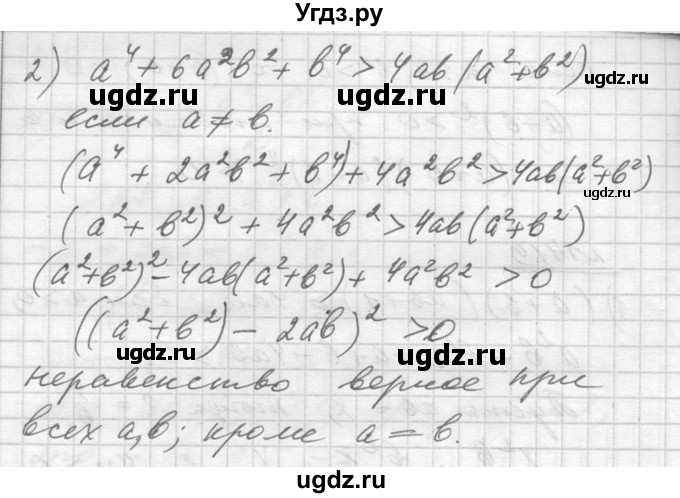 Угдз.ру
2) a⁴ + 6a²b² + b⁴ > 4ab(a² + b²)
ugdz.ru ugdz.ru ugdz.ru
если a ≠ b.
(a⁴ + 2a²b² + b⁴) + 4a²b² > 4ab(a² + b²)
ugdz.ru
(a² + b²)² + 4a²b² > 4ab(a² + b²)
ugdz.ru
(a² + b²)² - 4ab(a² + b²) + 4a²b² > 0
((a² + b²) - 2ab)² > 0
ugdz.ru ugdz.ru
неравенство верное при
всех a, b; кроме a = b.
ugdz.ru ugdz.ru